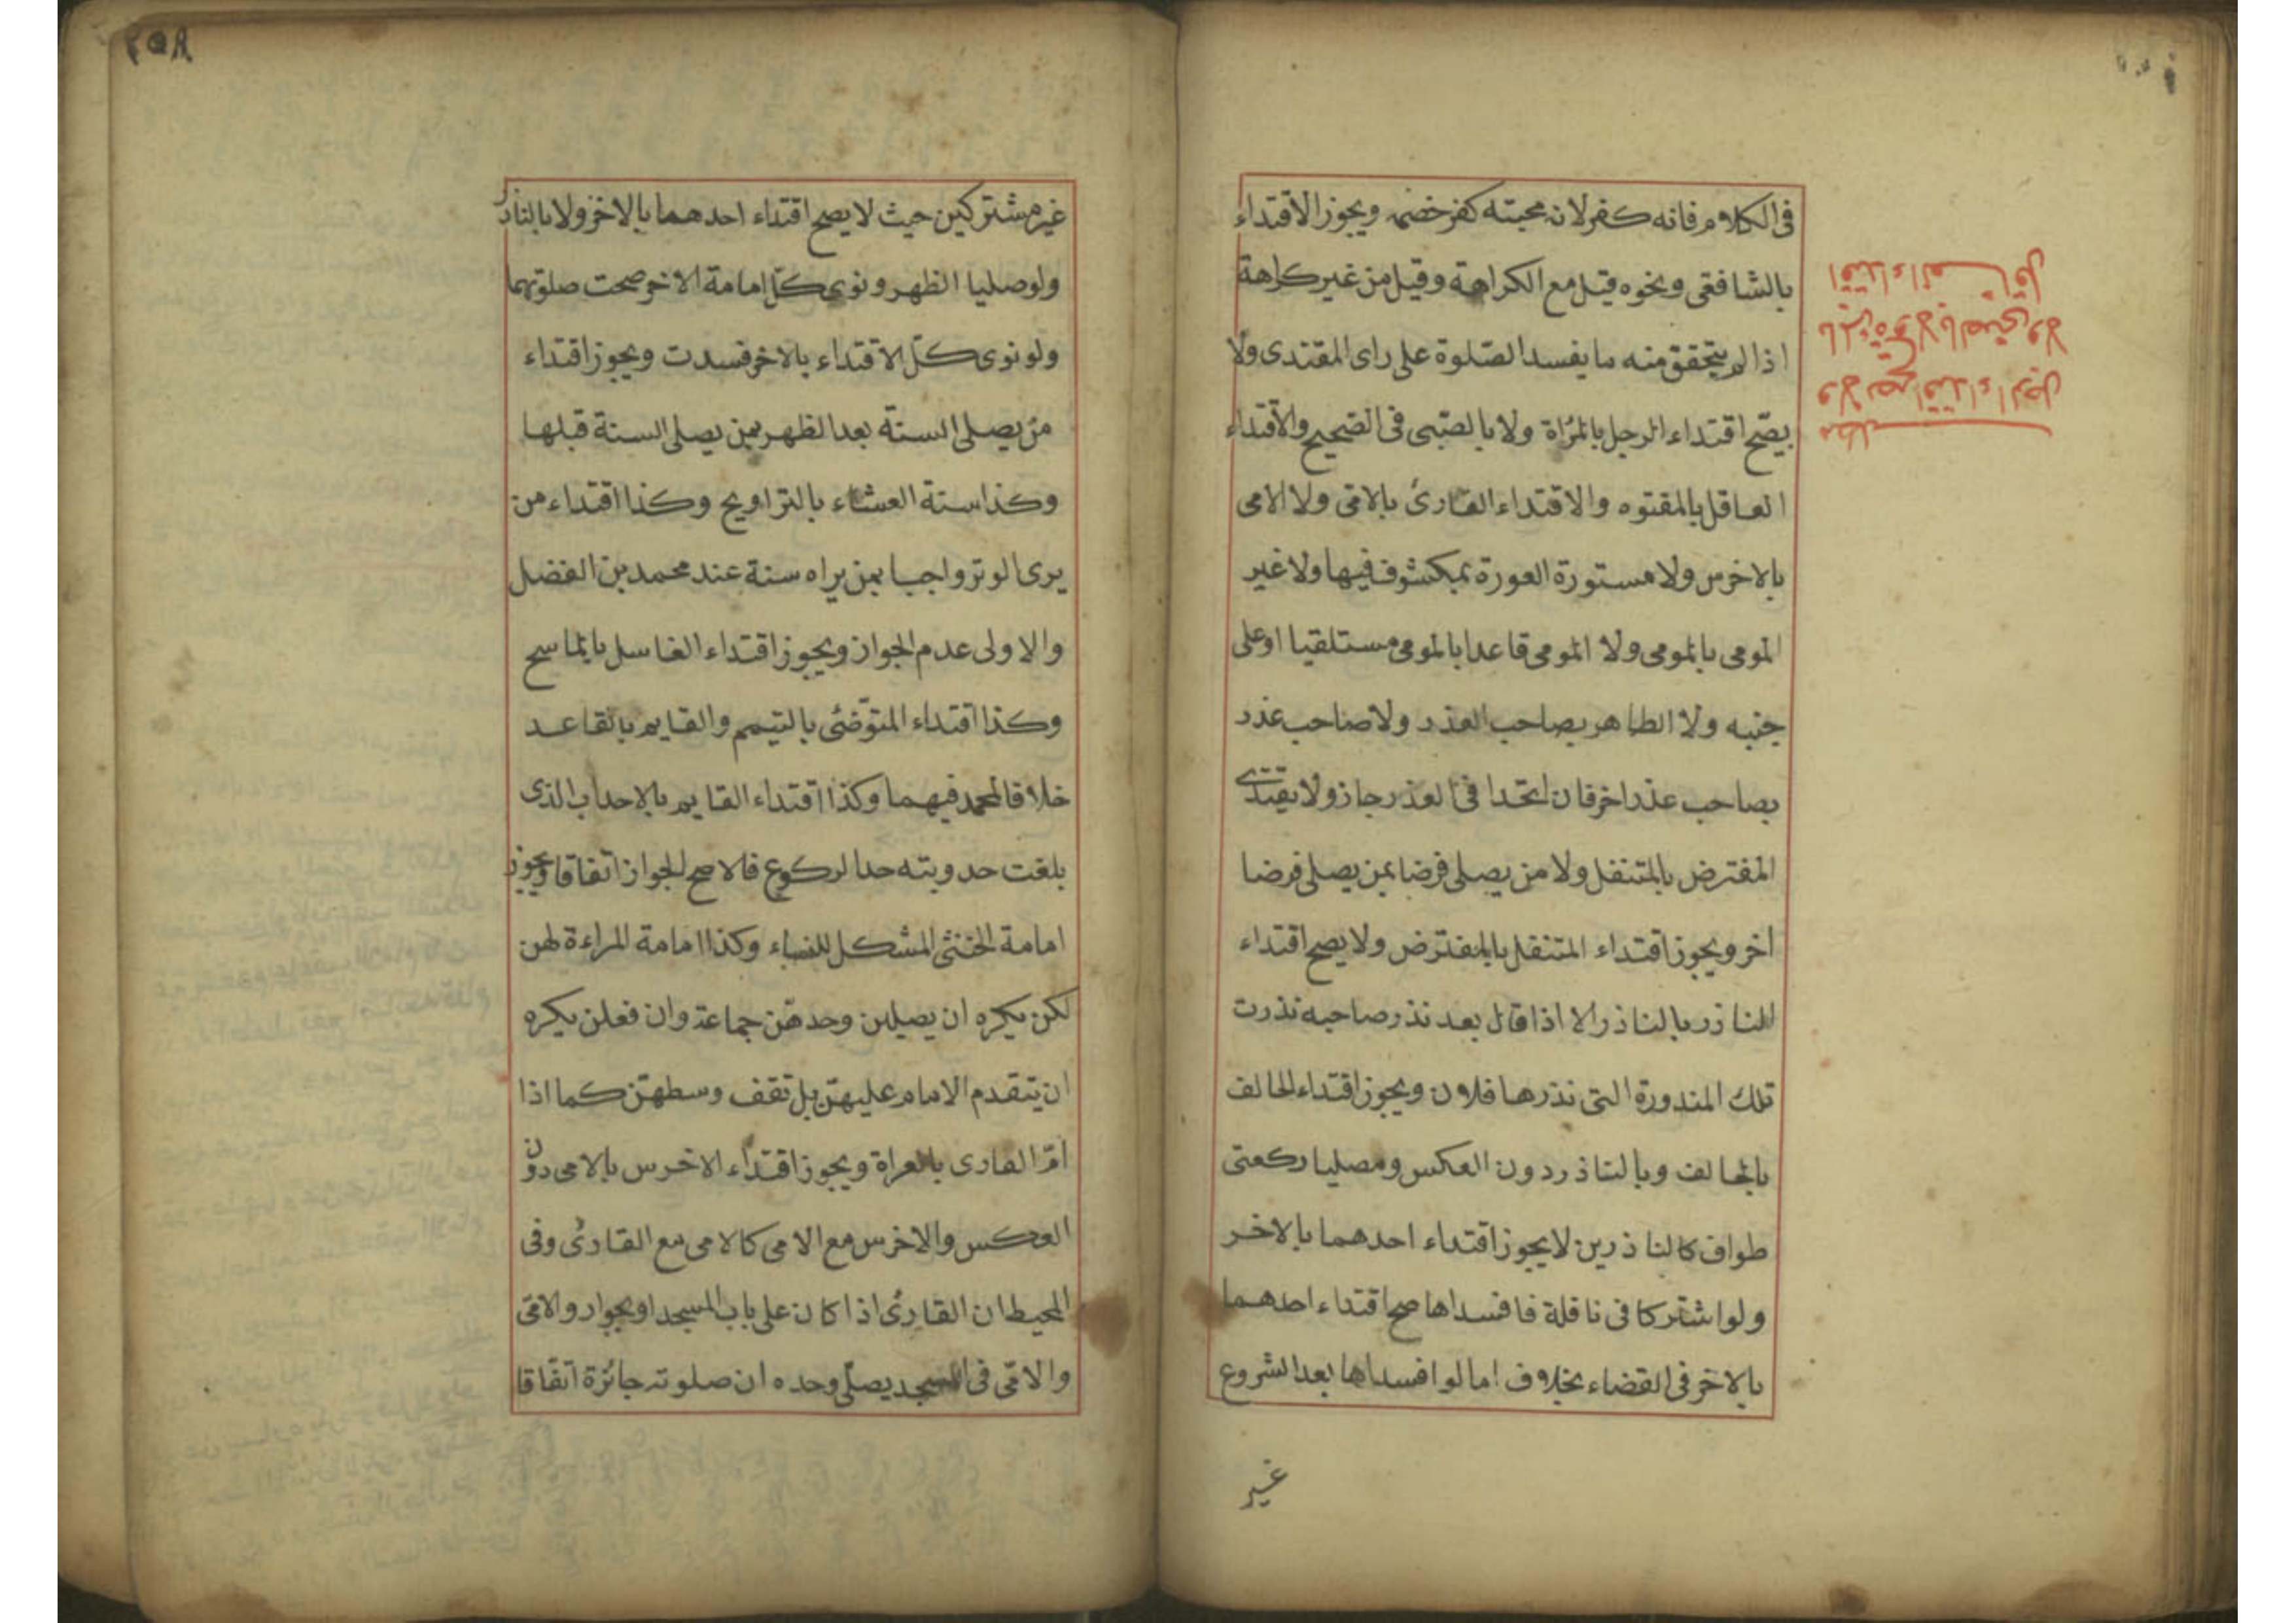 فى الكلام فانه كفر لانه محبته كفر خضمه ويجوز الاقتداء
بالشافعى ونحوه قيل مع الكراهة وقيل من غير كراهة
اذا لم يتحقق منه ما يفسد الصلوة على راى المقتدى ولا
يصح اقتداء الرجل بالمرأة ولا بالصبى فى الصحيح والاقتداء
العاقل بالمقتوه والاقتداء القارئ بالامى ولا الامى
بالاخرس ولا مستورة العورة بمكشوف فيها ولا غير
المومى بالمومى ولا المومى قاعدا بالمومى مستلقيا اوعلى
جنبه ولا الطاهر بصاحب العذر ولا صاحب عذر
بصاحب عذر اخر فان اتحدا فى العذر جاز ولا يقتدى
المفترض بالمتنفل ولا من يصلى فرضا بمن يصلى فرضا
اخر ويجوز اقتداء المتنفل بالمفترض ولا يصح اقتداء
الناذر بالناذر الا اذا قال بعد نذر صاحبه نذرت
تلك المنذورة التى نذرها فلان ويجوز اقتداء الحالف
بالحالف وبالناذر دون العكس ومصليا ركعتى
طواف كالناذرين لا يجوز اقتداء احدهما بالاخر
ولو اشتركا فى نافلة فافسداها صح اقتداء احدهما
بالاخر فى القضاء بخلاف اما لو افسداها بعد الشروع
غير
مطلب
ولا يصح اقتداء الرجل
بالمرءة ولا بالصبى ولا
اقتداء العاقل
٢٥٨
غير مشتركين حيث لا يصح اقتداء احدهما بالاخر ولا بالناذر
ولو صليا الظهر ونوى كل امامة الاخر صحت صلوتهما
ولو نوى كل الاقتداء بالاخر فسدت ويجوز اقتداء
من يصلى السنة بعد الظهر بمن يصلى السنة قبلها
وكذا سنة العشاء بالتراويح وكذا اقتداء من
يرى الوتر واجبا بمن يراه سنة عند محمد بن الفضل
والاولى عدم الجواز ويجوز اقتداء الغاسل بالماسح
وكذا اقتداء المتوضئ بالتيمم والقايم بالقاعد
خلافا لمحمد فيهما وكذا اقتداء القايم بالاحداب الذى
بلغت حدوبته حد الركوع فالاصح الجواز اتفاقا ويجوز
امامة الخنثى المشكل للنساء وكذا امامة المراءة لهن
لكن يكره ان يصلين وحدهن جماعة وان فعلن يكره
ان يتقدم الامام عليهن بل تقف وسطهن كما اذا
ام القارى بالعراة ويجوز اقتداء الاخرس بالامى دون
العكس والاخرس مع الامى كالامى مع القارئ وفى
المحيط ان القارئ اذا كان على باب المسجد او بجوار والامى
والامى فى المسجد يصلى وحده ان صلوته جائزة اتفاقا